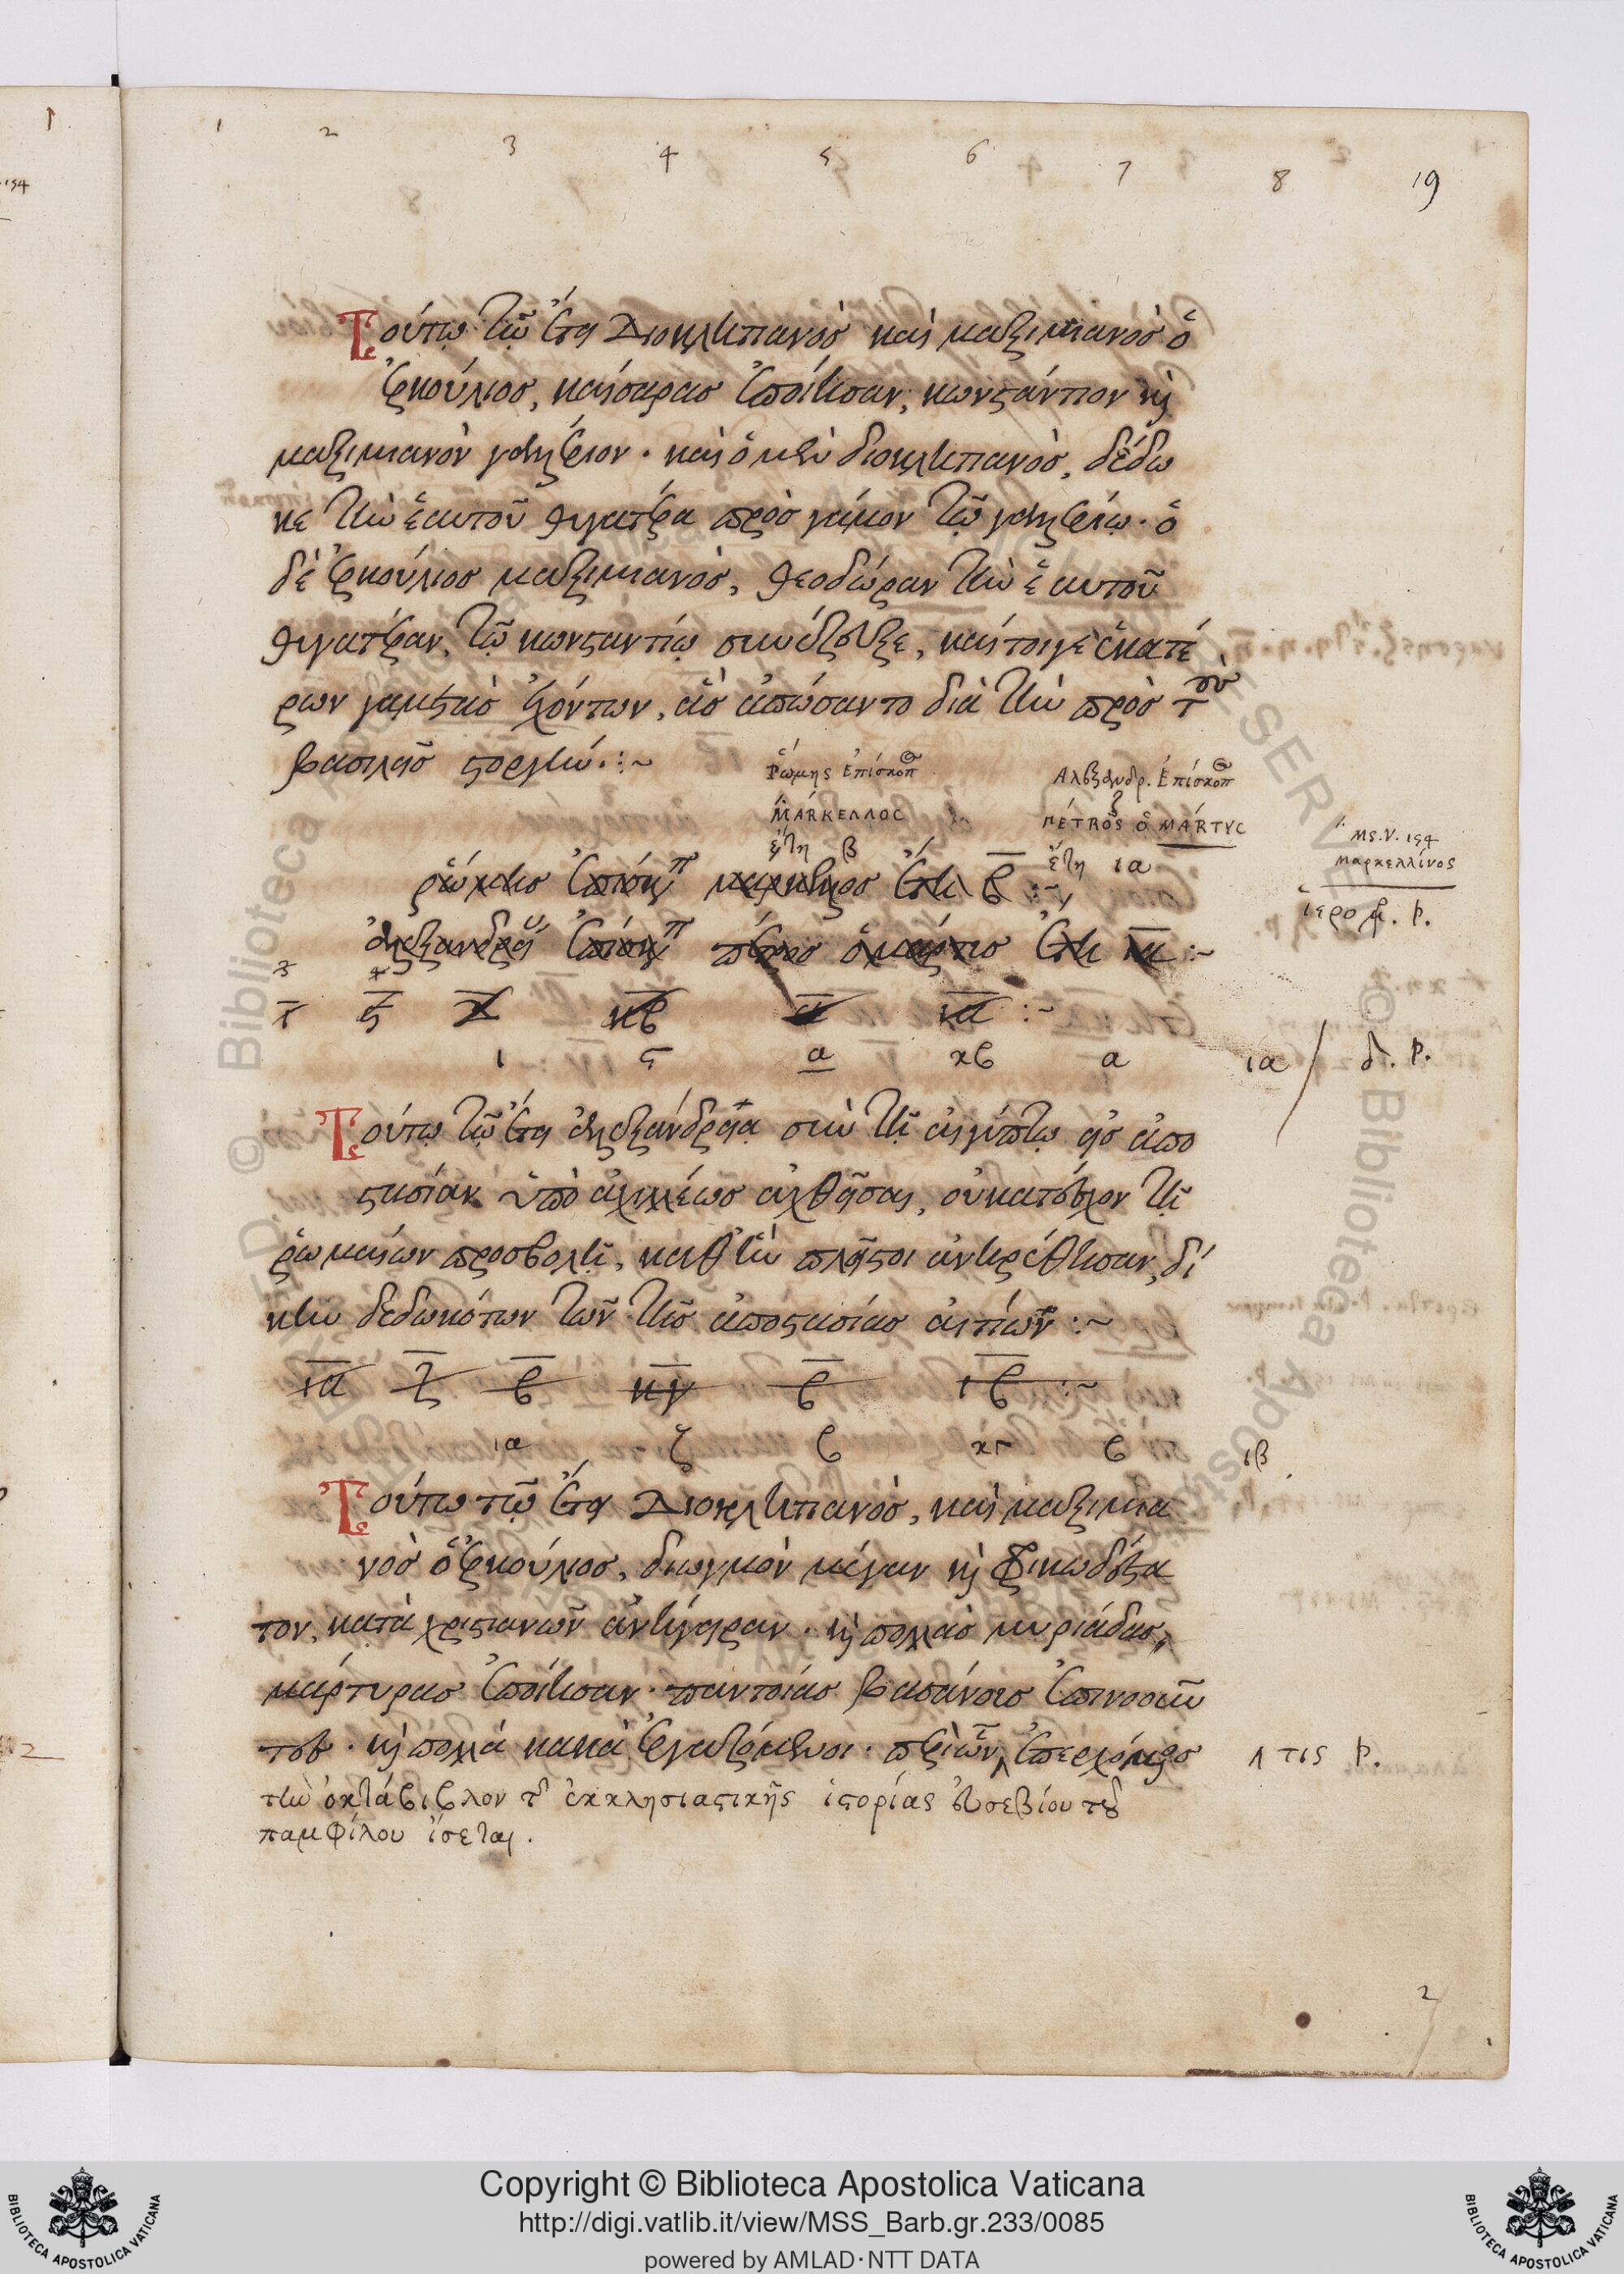 1 2 3 4 5 6 7 8 19
Τούτῳ τῷ ἔτει Διοκλητιανὸς καὶ μαξιμιανὸς ὁ
ἑρκούλιος, καίσαρας ἐποίησαν, κωνστάντιον καὶ
μαξιμιανὸν γαλέριον · καὶ ὁ μὲν διοκλητιανὸς, δέδω
κε τὴν ἑαυτοῦ θυγατέρα πρὸς γάμον τῷ γαλερίῳ · ὁ
δὲ ἑρκούλιος μαξιμιανὸς, θεοδώραν τὴν ἑαυτοῦ
θυγατέραν, τῷ κωνσταντίῳ συνέζευξε, καίτοιγε ἑκατέ
ρων γαμετὰς ἐχόντων, ἃς ἀπώσαντο διὰ τὴν πρὸς τοὺς
βασιλεῖς στοργήν · :~
Ῥώμης ἐπίσκοπ Αλεξανδρ. ἐπίσκοπ
ΜÁRΚΕΛΛΟC ΠÉΤRΟC ὁ ΜÁRΤΥC
ἔτη β ἔτη ια
MS.V. 154
μαρκελλίνος
ῥώμης ἐπίσκπ ἔτη β :~
ἀλεξανδρεί ἐπίσκπ πέτρος ὁ μάρτυς ἔτη ια :~
ι ϛ α κβ α ια :~
ι ϛ α κβ α ια / δ. P.
Τούτῳ τῷ ἔτει ἀλεξάνδρεια σὺν τῇ αἰγύπτῳ εἰς ἀπο
στασίαν ὑπὸ ἀχιλλέως ἀχθεῖσαι, οὐκ ἀντέσχον τῇ
ῥωμαίων προσβολῇ, καθ᾽ ἣν πλεῖστοι ἀνηρέθησαν, δί
κην δεδωκότων τῶν τῆς ἀποστασίας αἰτίων :~
ια ζ β κγ β ιβ :~
ια ζ β κγ β ιβ
Τούτῳ τῷ ἔτει Διοκλητιανὸς, καὶ μαξιμια
νὸς ὁ ἑρκούλιος, διωγμὸν μέγαν καὶ φρικωδέστα
τον, κατὰ χριστιανῶν ἀνήγειραν · καὶ πολλὰς μυριάδας,
μάρτυρας ἐποίησαν · παντοίας βασάνοις ἐπινοοῦν
τες · καὶ πολλὰ κακὰ ἐργαζόμενοι · περὶ ὧν ἐπερχόμενος Λ τις P.
τὴν ὀκτάβιβλον τῆς ἐκκλησιαστικῆς ἱστορίας εὐσεβίου τοῦ
παμφίλου εἴσεται.
2
Copyright © Biblioteca Apostolica Vaticana
http://digi.vatlib.it/view/MSS_Barb.gr.233/0085
powered by AMLAD·NTT DATA
BIBLIOTECA APOSTOLICA VATICANA
BIBLIOTECA APOSTOLICA VATICANA